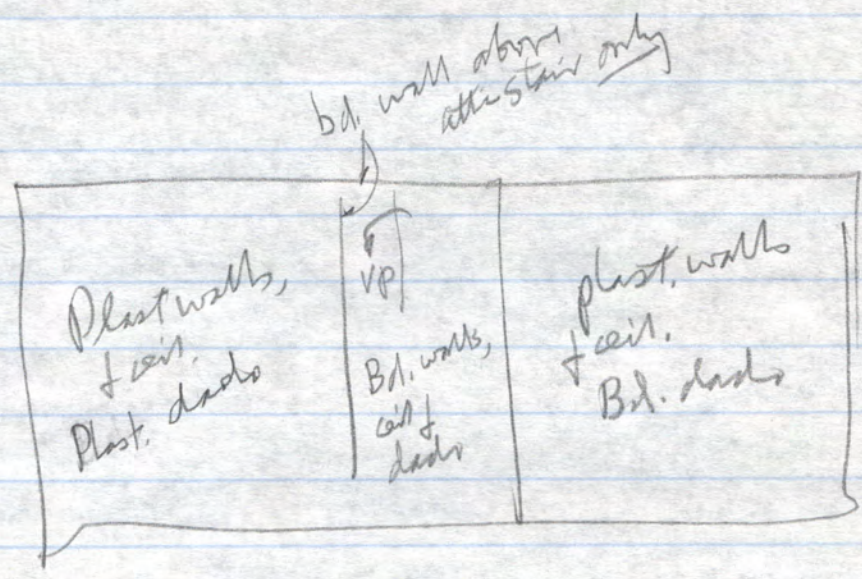 bd. wall above
attic stair only
Plast walls,
+ ceil.
Plast. dado
up
Bd. walls,
ceil +
dado
plast. walls
+ ceil.
Bd. dado